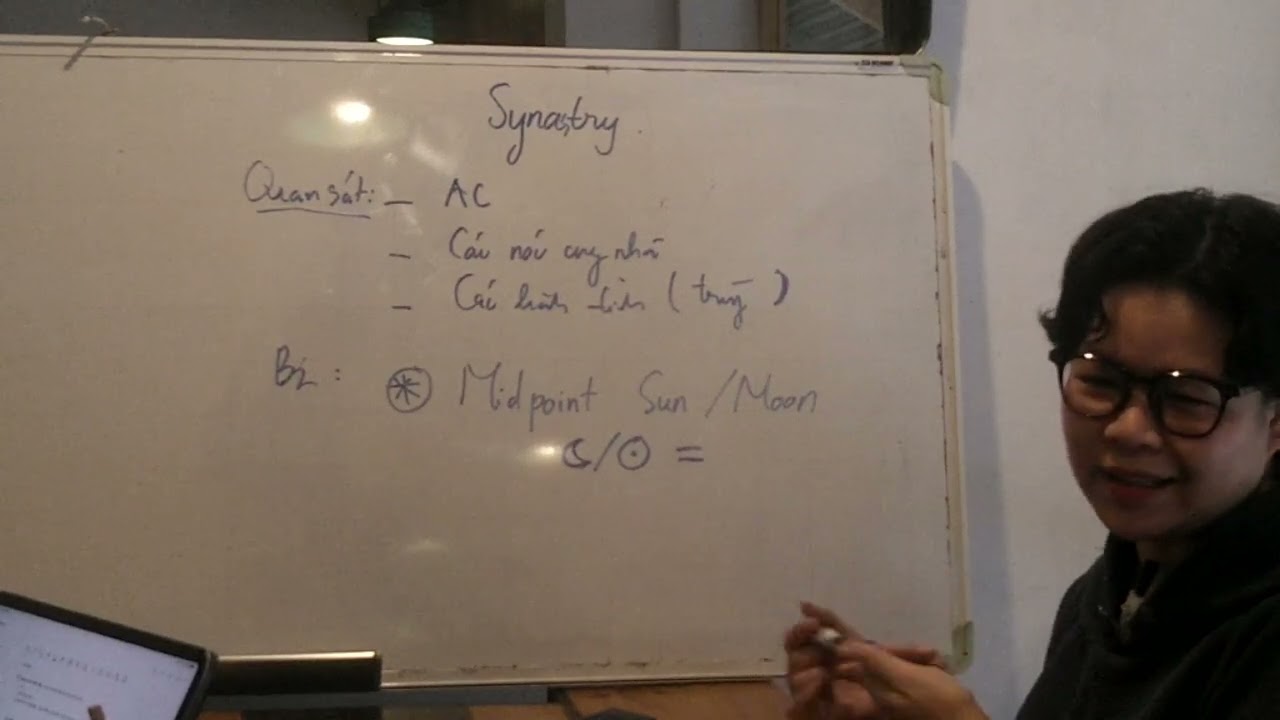 Synastry.
Quan sát: – AC
– Các nói cung nhà
– Các hành tinh (trùng)
B2: ⊛ Midpoint Sun/Moon
☾/☉ =